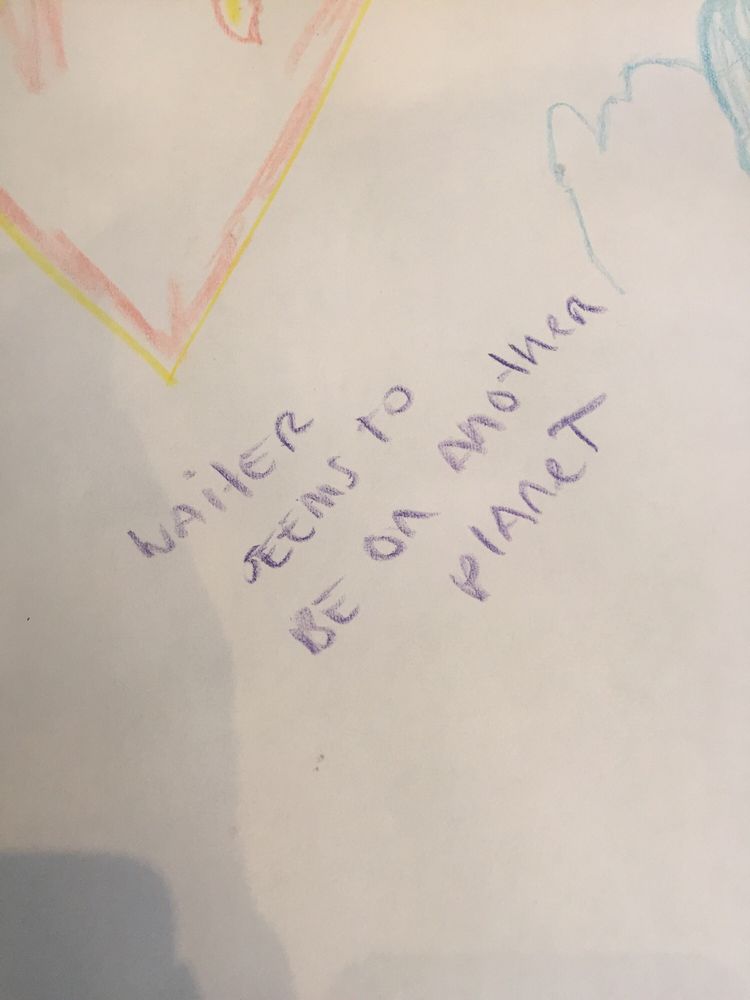 WAiTER
SEEMS TO
BE On AnoTHER
PlAneT